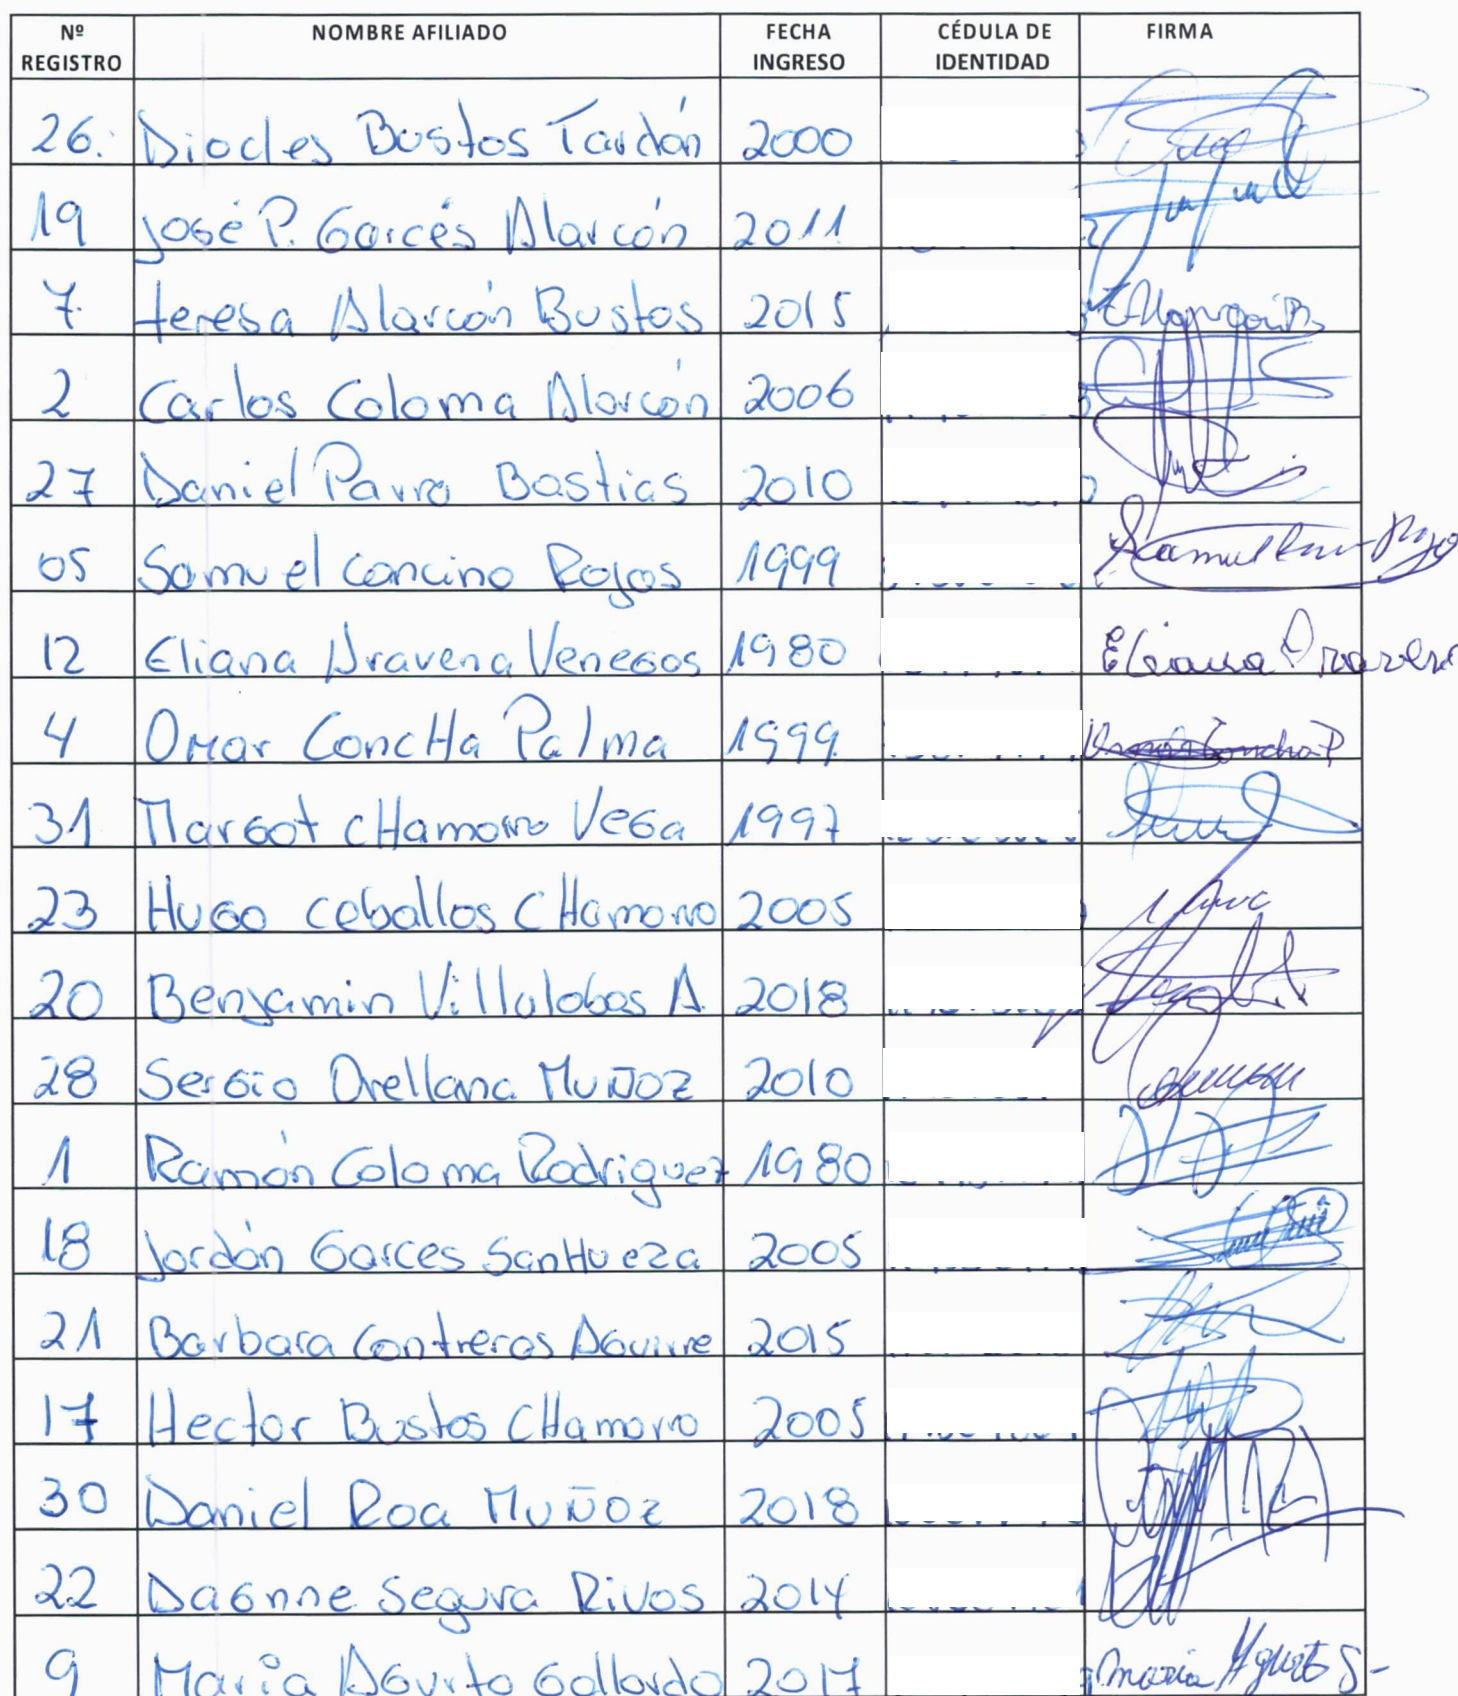 Nº REGISTRO NOMBRE AFILIADO FECHA INGRESO CÉDULA DE IDENTIDAD FIRMA
26. Diocles Bustos Tardón 2000
19 José P. Garcés Alarcón 2011
7 teresa Alarcón Bustos 2015
2 Carlos Coloma Alarcón 2006
27 Daniel Parra Bastias 2010
05 Samuel Cancino Rojas 1999
12 Eliana Aravena Venegas 1980 Eliana Aravena
4 Omar ConcHa Palma 1999 Concha P
31 Margot cHamorro Vega 1997
23 Hugo ceballos CHamorro 2005
20 Benjamin Villalobos A. 2018
28 Sergio Orellana MuÑoz 2010
1 Ramón Coloma Rodriguez 1980
18 Jordán Garces SanHueza 2005
21 Barbara Contreras Aguirre 2015
17 Hector Bustos CHamorro 2005
30 Daniel Roa MuÑoz 2018
22 Dagnne Segura Rivas 2014
9 Maria Agurto Gallardo 2017 Maria Agurto G-